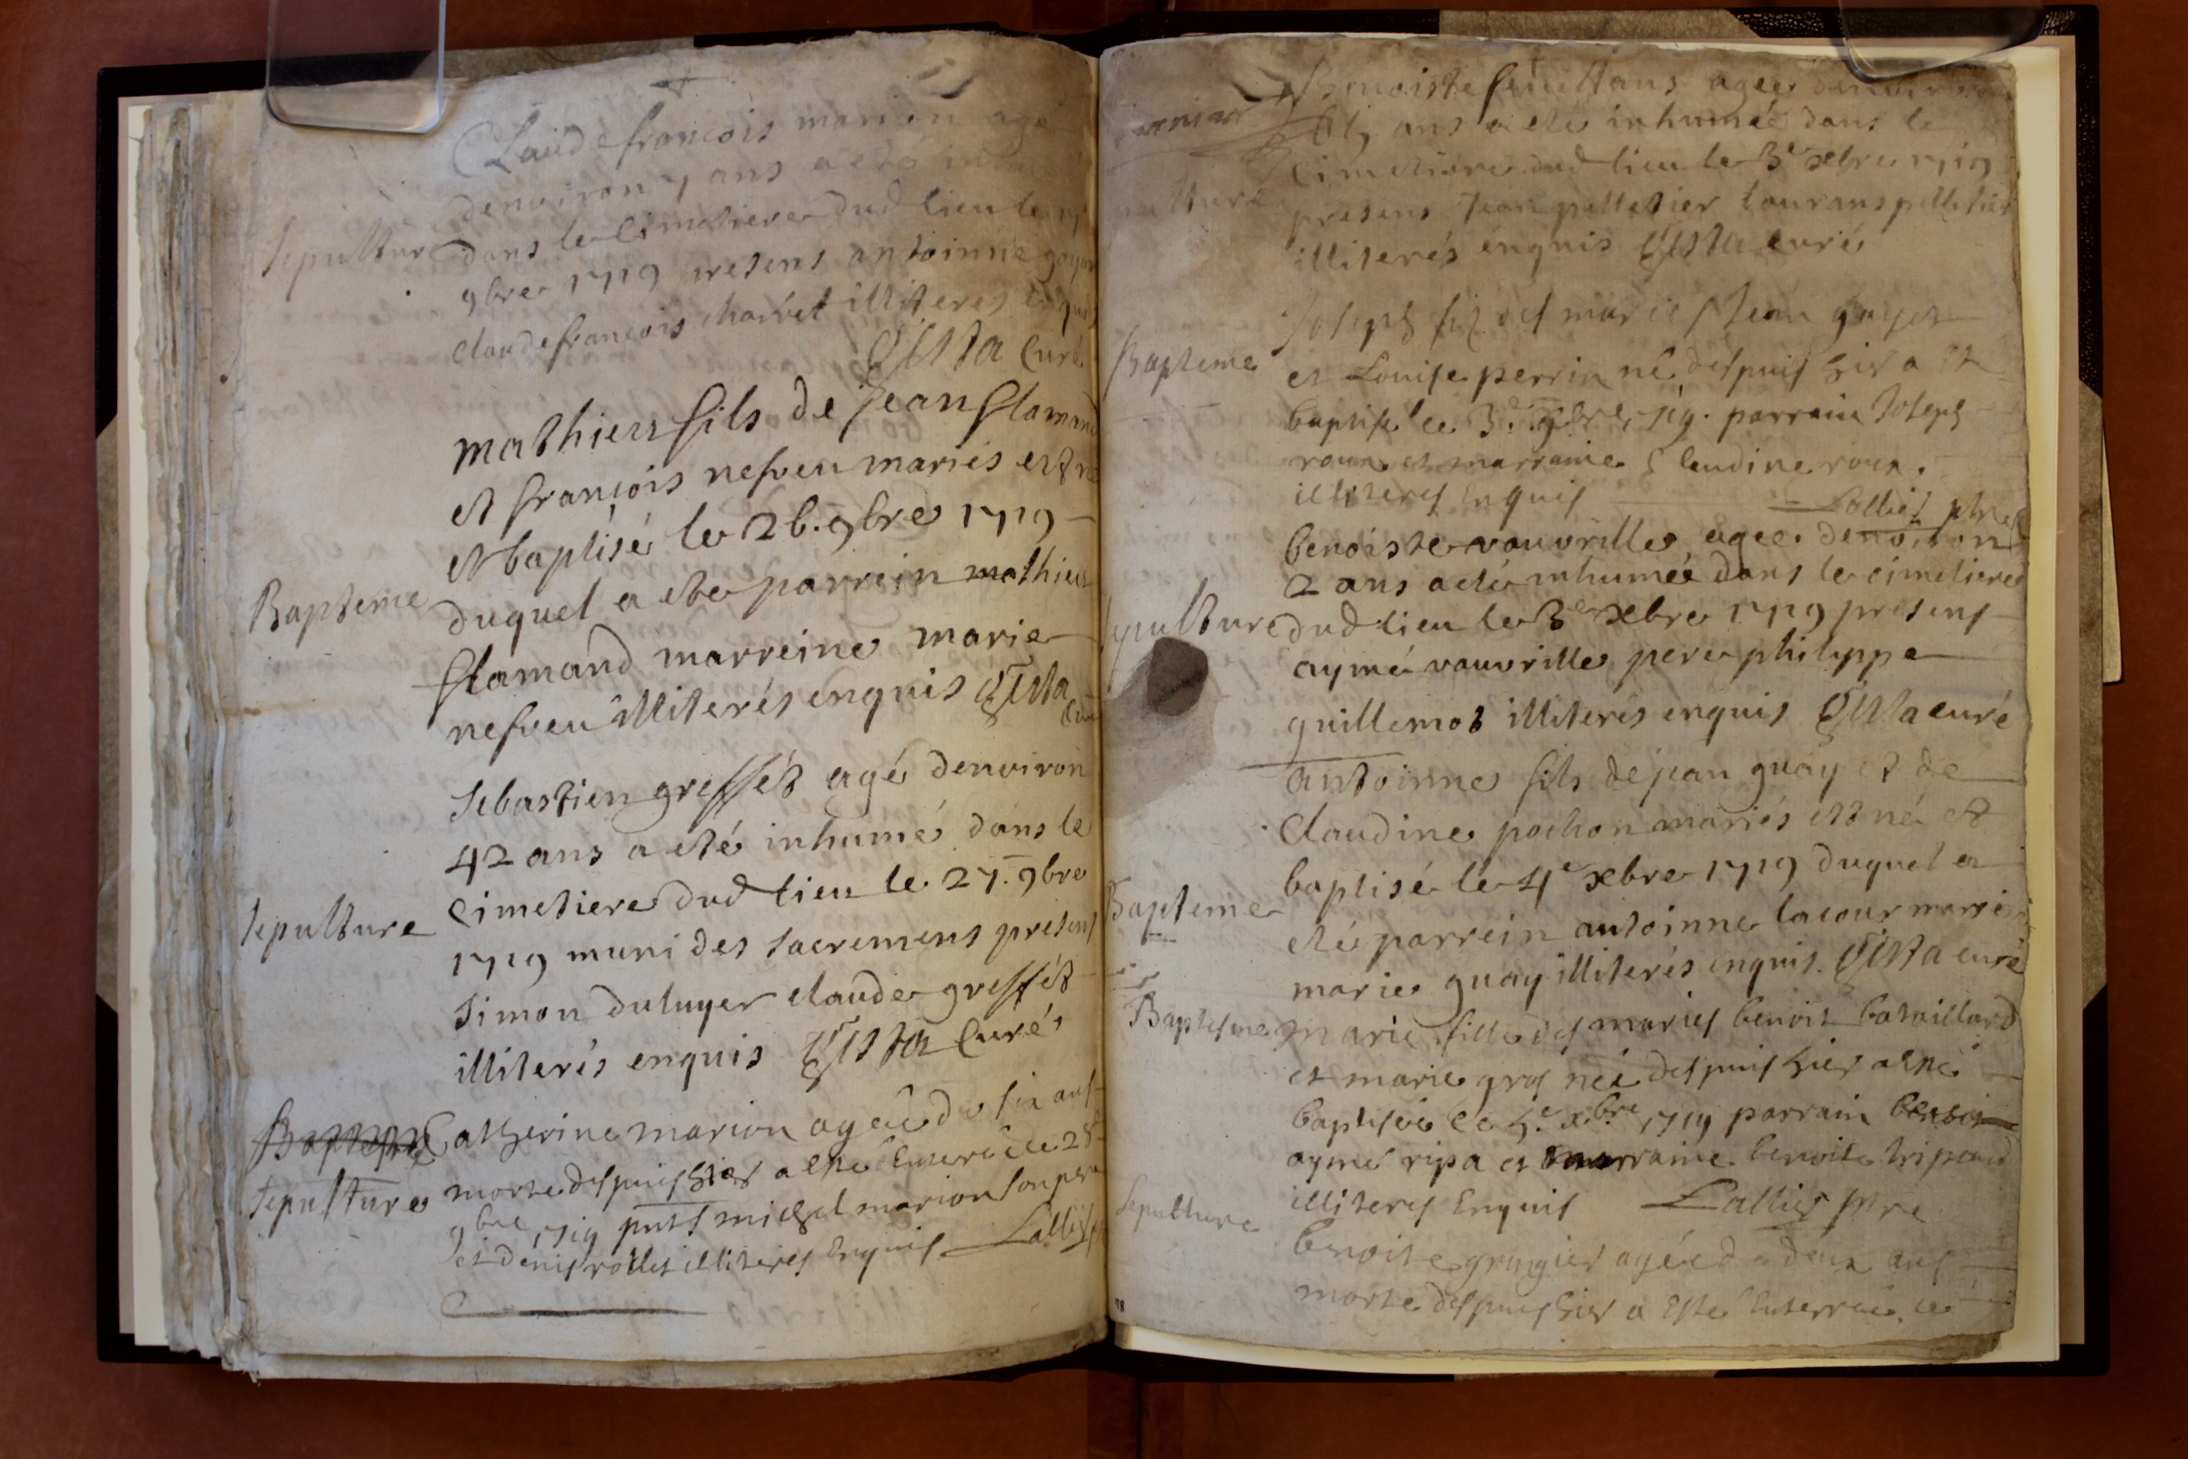 Claude françois marion agé
denviron 7 ans a eté
Sepulture dans le Cimetiere dud lieu le
9bre 1719 presens antoinne
claude françois charvet illiteres enquis
Gista Curé
mathieu fils de jean flamand
et françois nefveu mariés est né
et baptisé le 26. 9bre 1719
Bapteme duquel a ete parrein mathieu
flamand marreine marie
nefveu illiterés enquis Gista
Curé
Sebastien greffét agé denviron
42 ans a eté inhumé dans le
Cimetiere dud lieu le 27. 9bre
Sepulture 1719 muni des sacremens presens
Simon duluyer claude greffét
illiterés enquis Gista Curé
Catherine marion agéé de six ans
Sepulture morte despuis hier a esté enteréé le 28
9bre 1719 pnts michel marion son pere
et denis rollet illiteres Enquis Lallier
Benoiste agee denviron
ans a eté inhumée dans le
Cimetiere dud lieu le 3e xbre 1719
presens Jean pelletier lourans pelletier
illiterés enquis Gista curé
Joseph fils des mariés Jean goyet
Bapteme et Louise perrin né despuis hier a eté
baptisé le 3e 1719. parrain Joseph
roux et marraine Claudine roux.
illiteres Enquis Lallier ptre
benoiste vauvrille agee denviron
2 ans a eté inhumée dans le cimetiere
Sepulture dud lieu le 3e xbre 1719 presens
aymé vauvrille pere philippe
guillemot illiterés enquis Gista curé
antoinne fils de jean guay et de
Claudine pochon mariés est né et
baptisé le 4e xbre 1719 duquel a
Bapteme eté parrein antoinne lacour marreine
marie guay illiterés enquis. Gista curé
Baptesme marie fille des mariés benoit bataillard
et marie gros néé despuis hier a esté
baptiséé le 5e xbre 1719 parrain benoit
aymé ripa et marraine benoite tripoud
illiteres Enquis Lallier ptre
Sepulture
benoite grangier agéé de deux ans
morte despuis hier a Esté Enterréé le